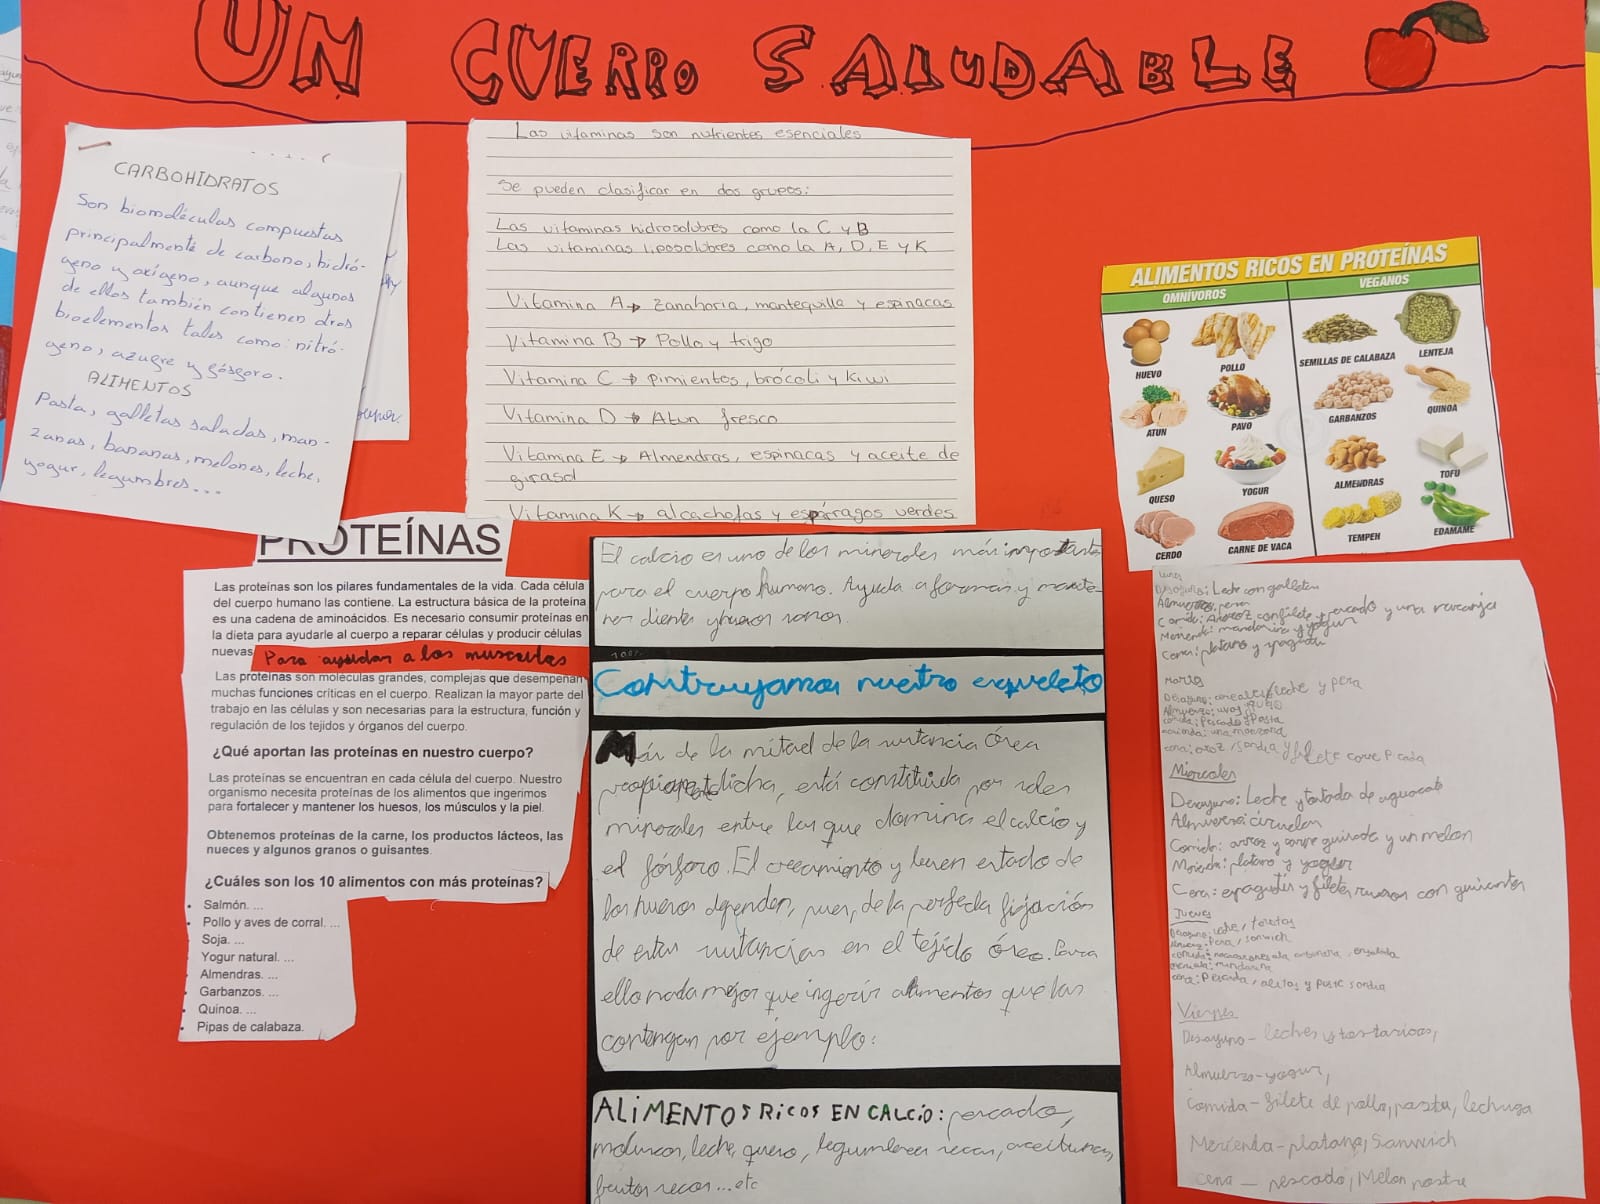 UN CUERPO SALUDABLE
CARBOHIDRATOS
Son biomoléculas compuestas
principalmente de carbono, hidró-
geno y oxígeno, aunque algunos
de ellos también contienen otros
bioelementos tales como: nitró-
geno, azufre y fósforo.
ALIMENTOS
Pasta, galletas saladas, man-
zanas, bananas, melones, leche,
yogur, legumbres...
Las vitaminas son nutrientes esenciales
Se pueden clasificar en dos grupos:
Las vitaminas hidrosolubres como la C y B
Las vitaminas liposolubres como la A, D, E y K
Vitamina A → Zanahoria, mantequilla y espinacas
Vitamina B → Pollo y trigo
Vitamina C → pimientos, brócoli y Kiwi
Vitamina D → Atun fresco
Vitamina E → Almendras, espinacas y aceite de
girasol
Vitamina K → alcachofas y espárragos verdes
ALIMENTOS RICOS EN PROTEÍNAS
OMNÍVOROS VEGANOS
HUEVO POLLO SEMILLAS DE CALABAZA LENTEJA
ATUN PAVO GARBANZOS QUINOA
QUESO YOGUR ALMENDRAS TOFU
CERDO CARNE DE VACA TEMPEH EDAMAME
PROTEÍNAS
Las proteínas son los pilares fundamentales de la vida. Cada célula
del cuerpo humano las contiene. La estructura básica de la proteína
es una cadena de aminoácidos. Es necesario consumir proteínas en
la dieta para ayudarle al cuerpo a reparar células y producir células
nuevas
Para ayudar a los musculos
Las proteínas son moléculas grandes, complejas que desempeñan
muchas funciones críticas en el cuerpo. Realizan la mayor parte del
trabajo en las células y son necesarias para la estructura, función y
regulación de los tejidos y órganos del cuerpo.
¿Qué aportan las proteínas en nuestro cuerpo?
Las proteínas se encuentran en cada célula del cuerpo. Nuestro
organismo necesita proteínas de los alimentos que ingerimos
para fortalecer y mantener los huesos, los músculos y la piel.
Obtenemos proteínas de la carne, los productos lácteos, las
nueces y algunos granos o guisantes.
¿Cuáles son los 10 alimentos con más proteínas?
Salmón. ...
Pollo y aves de corral. ...
Soja. ...
Yogur natural. ...
Almendras. ...
Garbanzos. ...
Quinoa. ...
Pipas de calabaza.
El calcio es uno de los minerales más importante
para el cuerpo humano. Ayuda a formar y mante-
ner dientes y huesos sanos.
Contruyamos nuestro esqueleto
Más de la mitad de la sustancia ósea
dicha, está constituida por sales
minerales entre las que domina el calcio y
el fósforo. El crecimiento y buen estado de
los huesos dependen, pues, de la perfecta fijación
de estas sustancias en el tejido óseo. Para
ello nada mejor que ingerir alimentos que las
contengan por ejemplo:
ALIMENTOS RICOS EN CALCIO: pescado,
moluscos, leche, queso, legumbres secas, aceitunas,
frutos secos...etc
Lunes
Desayuno: Leche con galletas
Almuerzo: pera
Comida: Arroz con filete y pescado y una naranja
Merienda: mandarina y yogur
Cena: platano y
Martes
Desayuno: cereales/leche y pera
Almuerzo: uvas
comida: Pescado y Pasta
merienda: una manzana
cena: arroz, sandia y filete carne Picada
Miercoles
Desayuno: Leche y tostada de aguacate
Almuerzo: ciruelas
Comida: arroz y carne guisada y un melon
Merienda: platano y yogur
Cena: espagetis y filetes rusos con guisantes
Jueves
Desayuno: leche, tostas
Almuerzo: Pera, sanwich
comida: macarrones a la carbonara, ensalada
merienda: mandarina
cena: Pescado, alitas y sandia
Viernes
Desayuno - leches y
Almuerzo - yogur,
Comida - filete de pollo, pasta, lechuga
Merienda - platano, Sanwich
cena - pescado, Melon postre